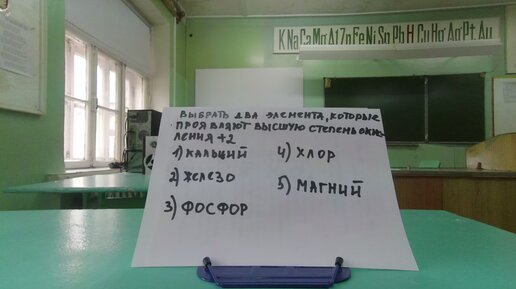 K Na Ca Mg Al Zn Fe Ni Sn Pb H Cu Hg Ag Pt Au
ВЫБРАТЬ ДВА ЭЛЕМЕНТА, КОТОРЫЕ
ПРОЯВЛЯЮТ ВЫСШУЮ СТЕПЕНЬ ОКИС-
ЛЕНИЯ +2
1) КАЛЬЦИЙ
2) ЖЕЛЕЗО
3) ФОСФОР
4) ХЛОР
5) МАГНИЙ